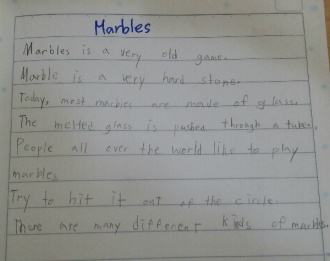 Marbles
Marbles is a very old game.
Marble is a very hard stone.
Today, most marbles are made of glass.
The melted glass is pushed through a tube.
People all over the world like to play
marbles.
Try to hit it out of the circle.
There are many different kinds of marbles.